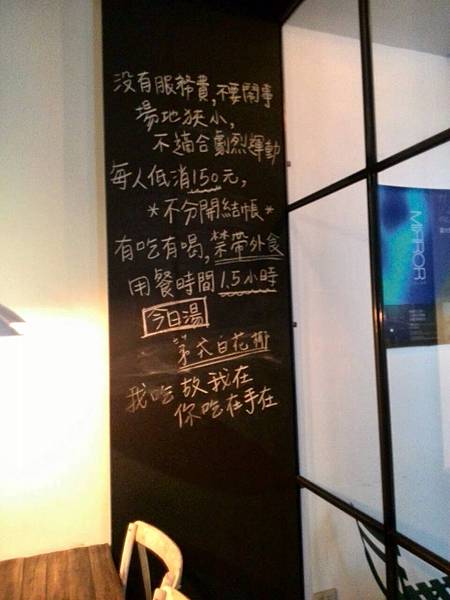 没有服務費,不要鬧事
場地狹小,
不適合劇烈運動
每人低消150元,
*不分開結帳*
有吃有喝,禁帶外食
用餐時間1.5小時
今日湯
式白花椰
我吃故我在
你吃在手在
MIRROR